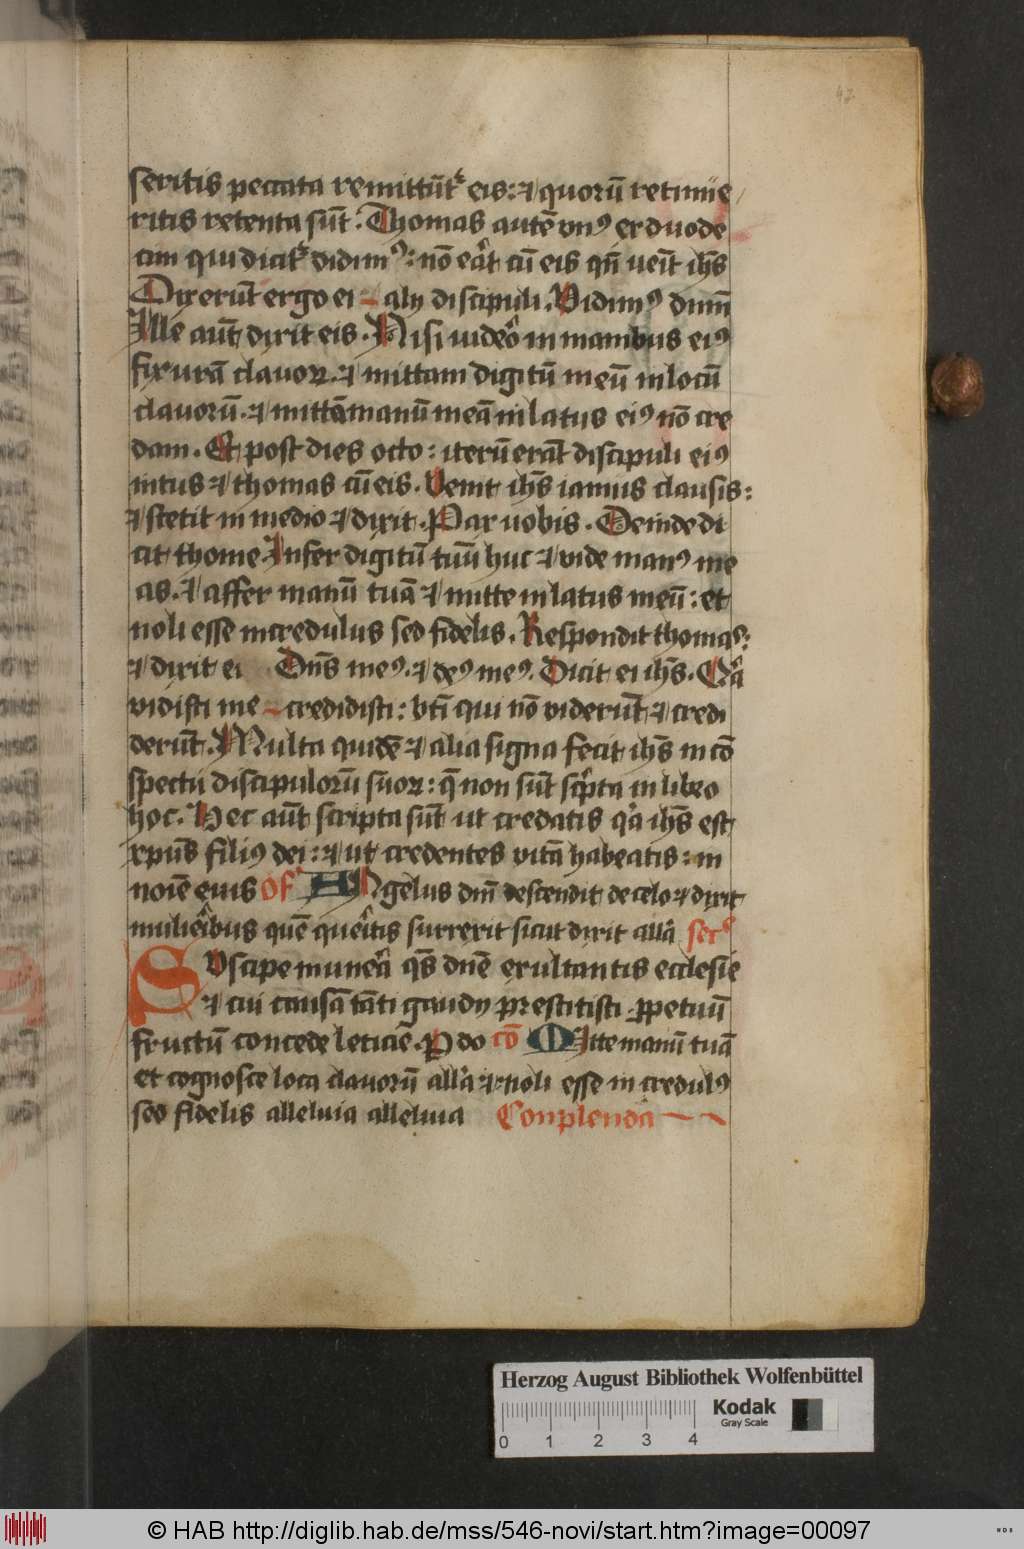 42
seritis peccata remittūt᷑ eis: ⁊ quorū retinue
ritis retenta sūt. Thomas autē vnꝰ ex duode
cim qui dicit᷑ didimꝰ: nō erāt cū eis qn̄ uenīt ih̄s
Dixerūt ergo ei alij discipuli. Vidimꝰ dn̄m
Ille aūt dixit eis. Nisi videro in manibus eiꝰ
fixurā clauoꝝ. ⁊ mittam digitū meū in locū
clauorū. ⁊ mittā manū meā in latus eiꝰ nō cre
dam. Et post dies octo: iterū erāt discipuli eiꝰ
intus ⁊ thomas cū eis. Venit ih̄s ianuis clausis:
⁊ stetit in medio ⁊ dixit. Pax uobis. Deinde di
cit thome Infer digitū tuū huc ⁊ vide manꝰ me
as. ⁊ affer manū tuā ⁊ mitte in latus meū: et
noli esse incredulus sed fidelis. Respondit thomas:
⁊ dixit ei Dn̄s meꝰ. ⁊ deꝰ meꝰ. Dicit ei ih̄s. Qͥa
vidisti me credidisti: bt̄i qui nō viderūt ⁊ credi
derūt. Multa quidē ⁊ alia signa fecit ih̄s in cō
spectu discipulorū suoꝝ: q̄ non sūt scͥpta in libro
hoc. Hec aūt scripta sūt ut credatis qͥa ih̄s est
xp̄us filiꝰ dei: ⁊ ut credentes vitā habeatis: in
noīe eius Of Angelus dn̄i descendit de celo ⁊ dixit
mulieribus quē queritis surrexit sicut dixit allā secꝰ
Suscipe munera qs̄ dn̄e exultantis ecclesie
⁊ cui causā tāti gaudij prestitisti ꝑpetuū
fructū concede leticie. P do cō Mitte manū tuā
et cognosce loca clauorū allā ⁊ noli esse incredulꝰ
sed fidelis alleluia alleluia Conplendā
Herzog August Bibliothek Wolfenbüttel
Kodak
Gray Scale
0 1 2 3 4
© HAB http://diglib.hab.de/mss/546-novi/start.htm?image=00097